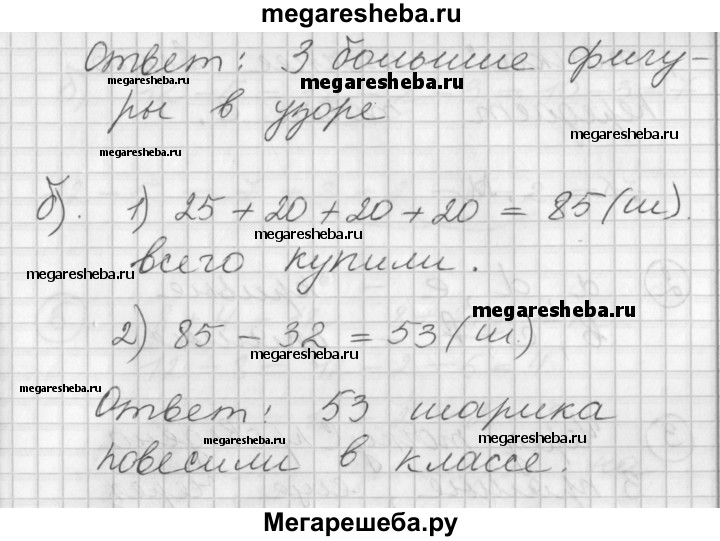 megaresheba.ru
Ответ: 3 большие фигу-
megaresheba.ru
megaresheba.ru
ры в узоре
megaresheba.ru
megaresheba.ru
б). 1) 25 + 20 + 20 + 20 = 85 (ш).
megaresheba.ru
всего купили.
megaresheba.ru
megaresheba.ru
2) 85 - 32 = 53 (ш.)
megaresheba.ru
megaresheba.ru
Ответ: 53 шарика
megaresheba.ru
megaresheba.ru
повесили в классе.
Мегарешеба.ру